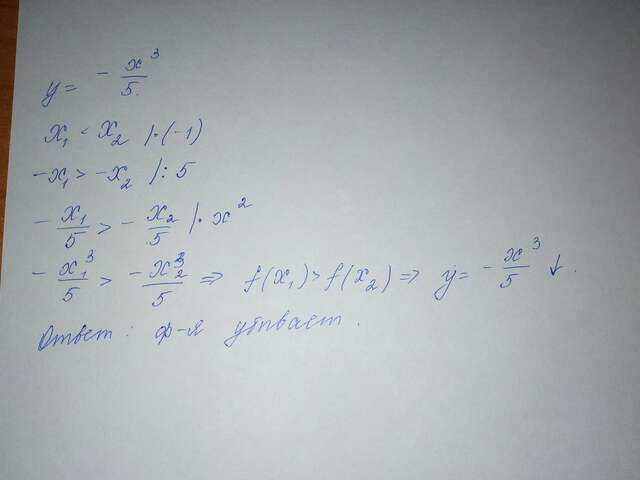 y = - x³/5.
x₁ < x₂ |·(-1)
-x₁ > -x₂ |: 5
- x₁/5 > - x₂/5 |· x²
- x₁³/5 > - x₂³/5 ⇒ f(x₁) > f(x₂) ⇒ y = - x³/5 ↓.
Ответ: ф-я убывает.